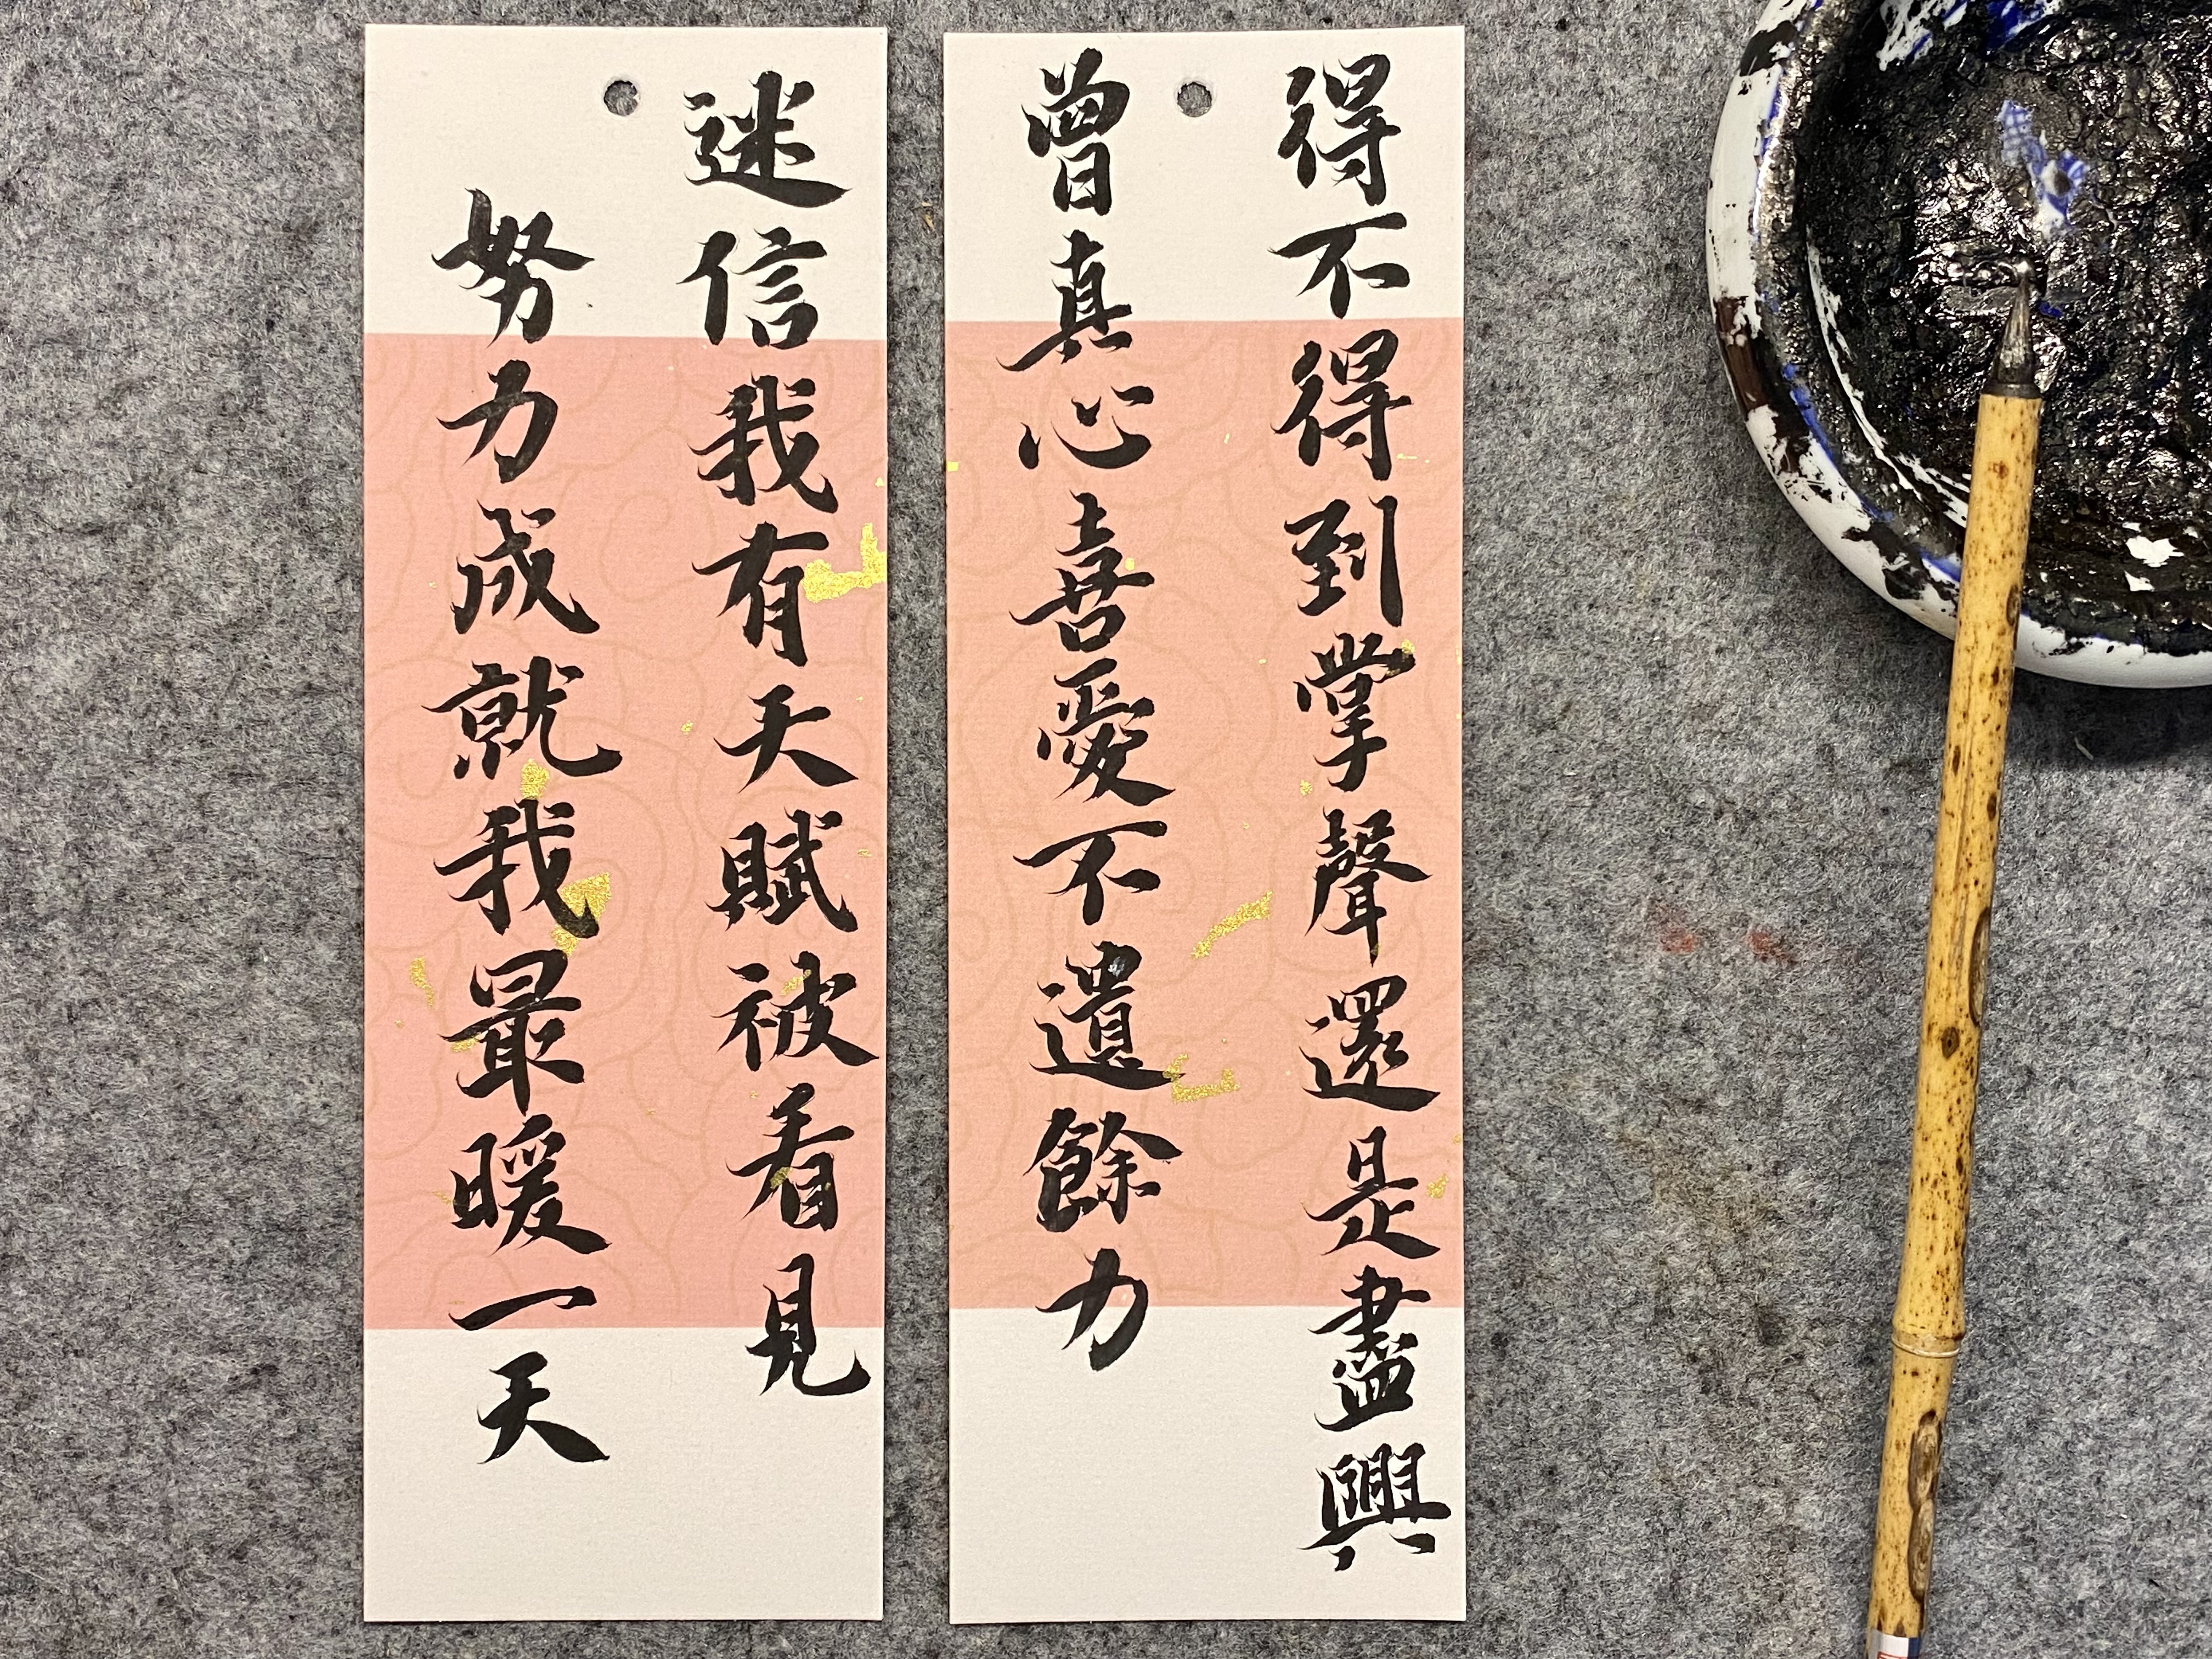 得不得到掌聲還是盡興
曾真心喜愛不遺餘力
迷信我有天賦被看見
努力成就我最暖一天